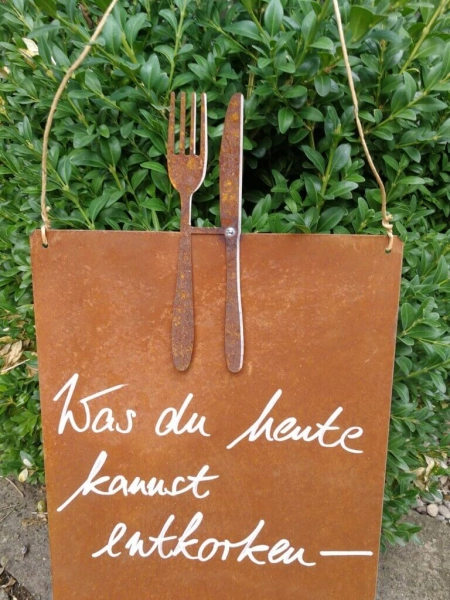 Was du heute
kannst
entkorken—